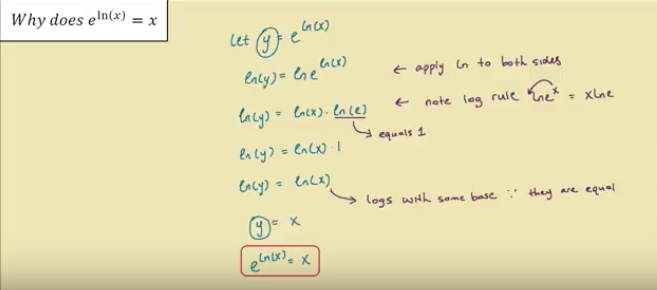 Why does e^ln(x) = x
Let y = e^ln(x)
ln(y) = ln e^ln(x) ← apply ln to both sides
ln(y) = ln(x) · ln(e) ← note log rule ln e^x = x ln e
→ equals 1
ln(y) = ln(x) · 1
ln(y) = ln(x)
→ logs with same base ∵ they are equal
y = x
e^ln(x) = x